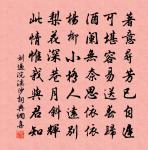 著意尋芳已自遲
可堪容易送春歸
酒闌無奈思依依
楊柳小橋人遠別
梨花深巷月斜輝
此情惟我與君知
劉過浣溪沙詞